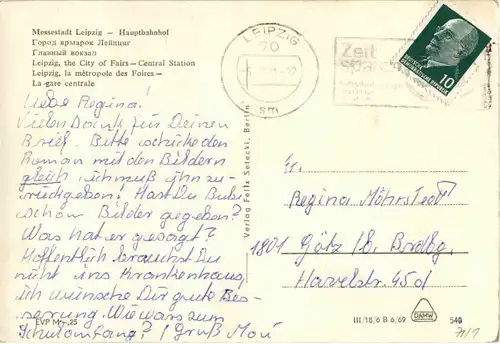 Messestadt Leipzig — Hauptbahnhof
Город ярмарок Лейпциг
Главный вокзал
Leipzig, the City of Fairs — Central Station
Leipzig, la métropole des Foires —
La gare centrale
Liebe Regina!
Vielen Dank für Deinen
Brief. Bitte schicke den
Roman mit den Bildern
gleich, ich muß ihn zu-
rückgeben! Hast Du Bubi
schon Bilder gegeben?
Was hat er gesagt?
Hoffentlich brauchst Du
nicht ins Krankenhaus,
ich wünsche Dir gute Bes-
serung. Wie war's zum
Schulanfang? / Gruß
EVP M -,25
Verlag Felix Setecki, Berlin
LEIPZIG
70
sm
Zeit
spa
DEUTSCHE DEMOKRATISCHE REPUBLIK
10
Fr.
Regina Möhrstedt
1801 Götz / b. Brdbg.
Havelstr. 45d
III/18/6 B 6/69
DAMW
540